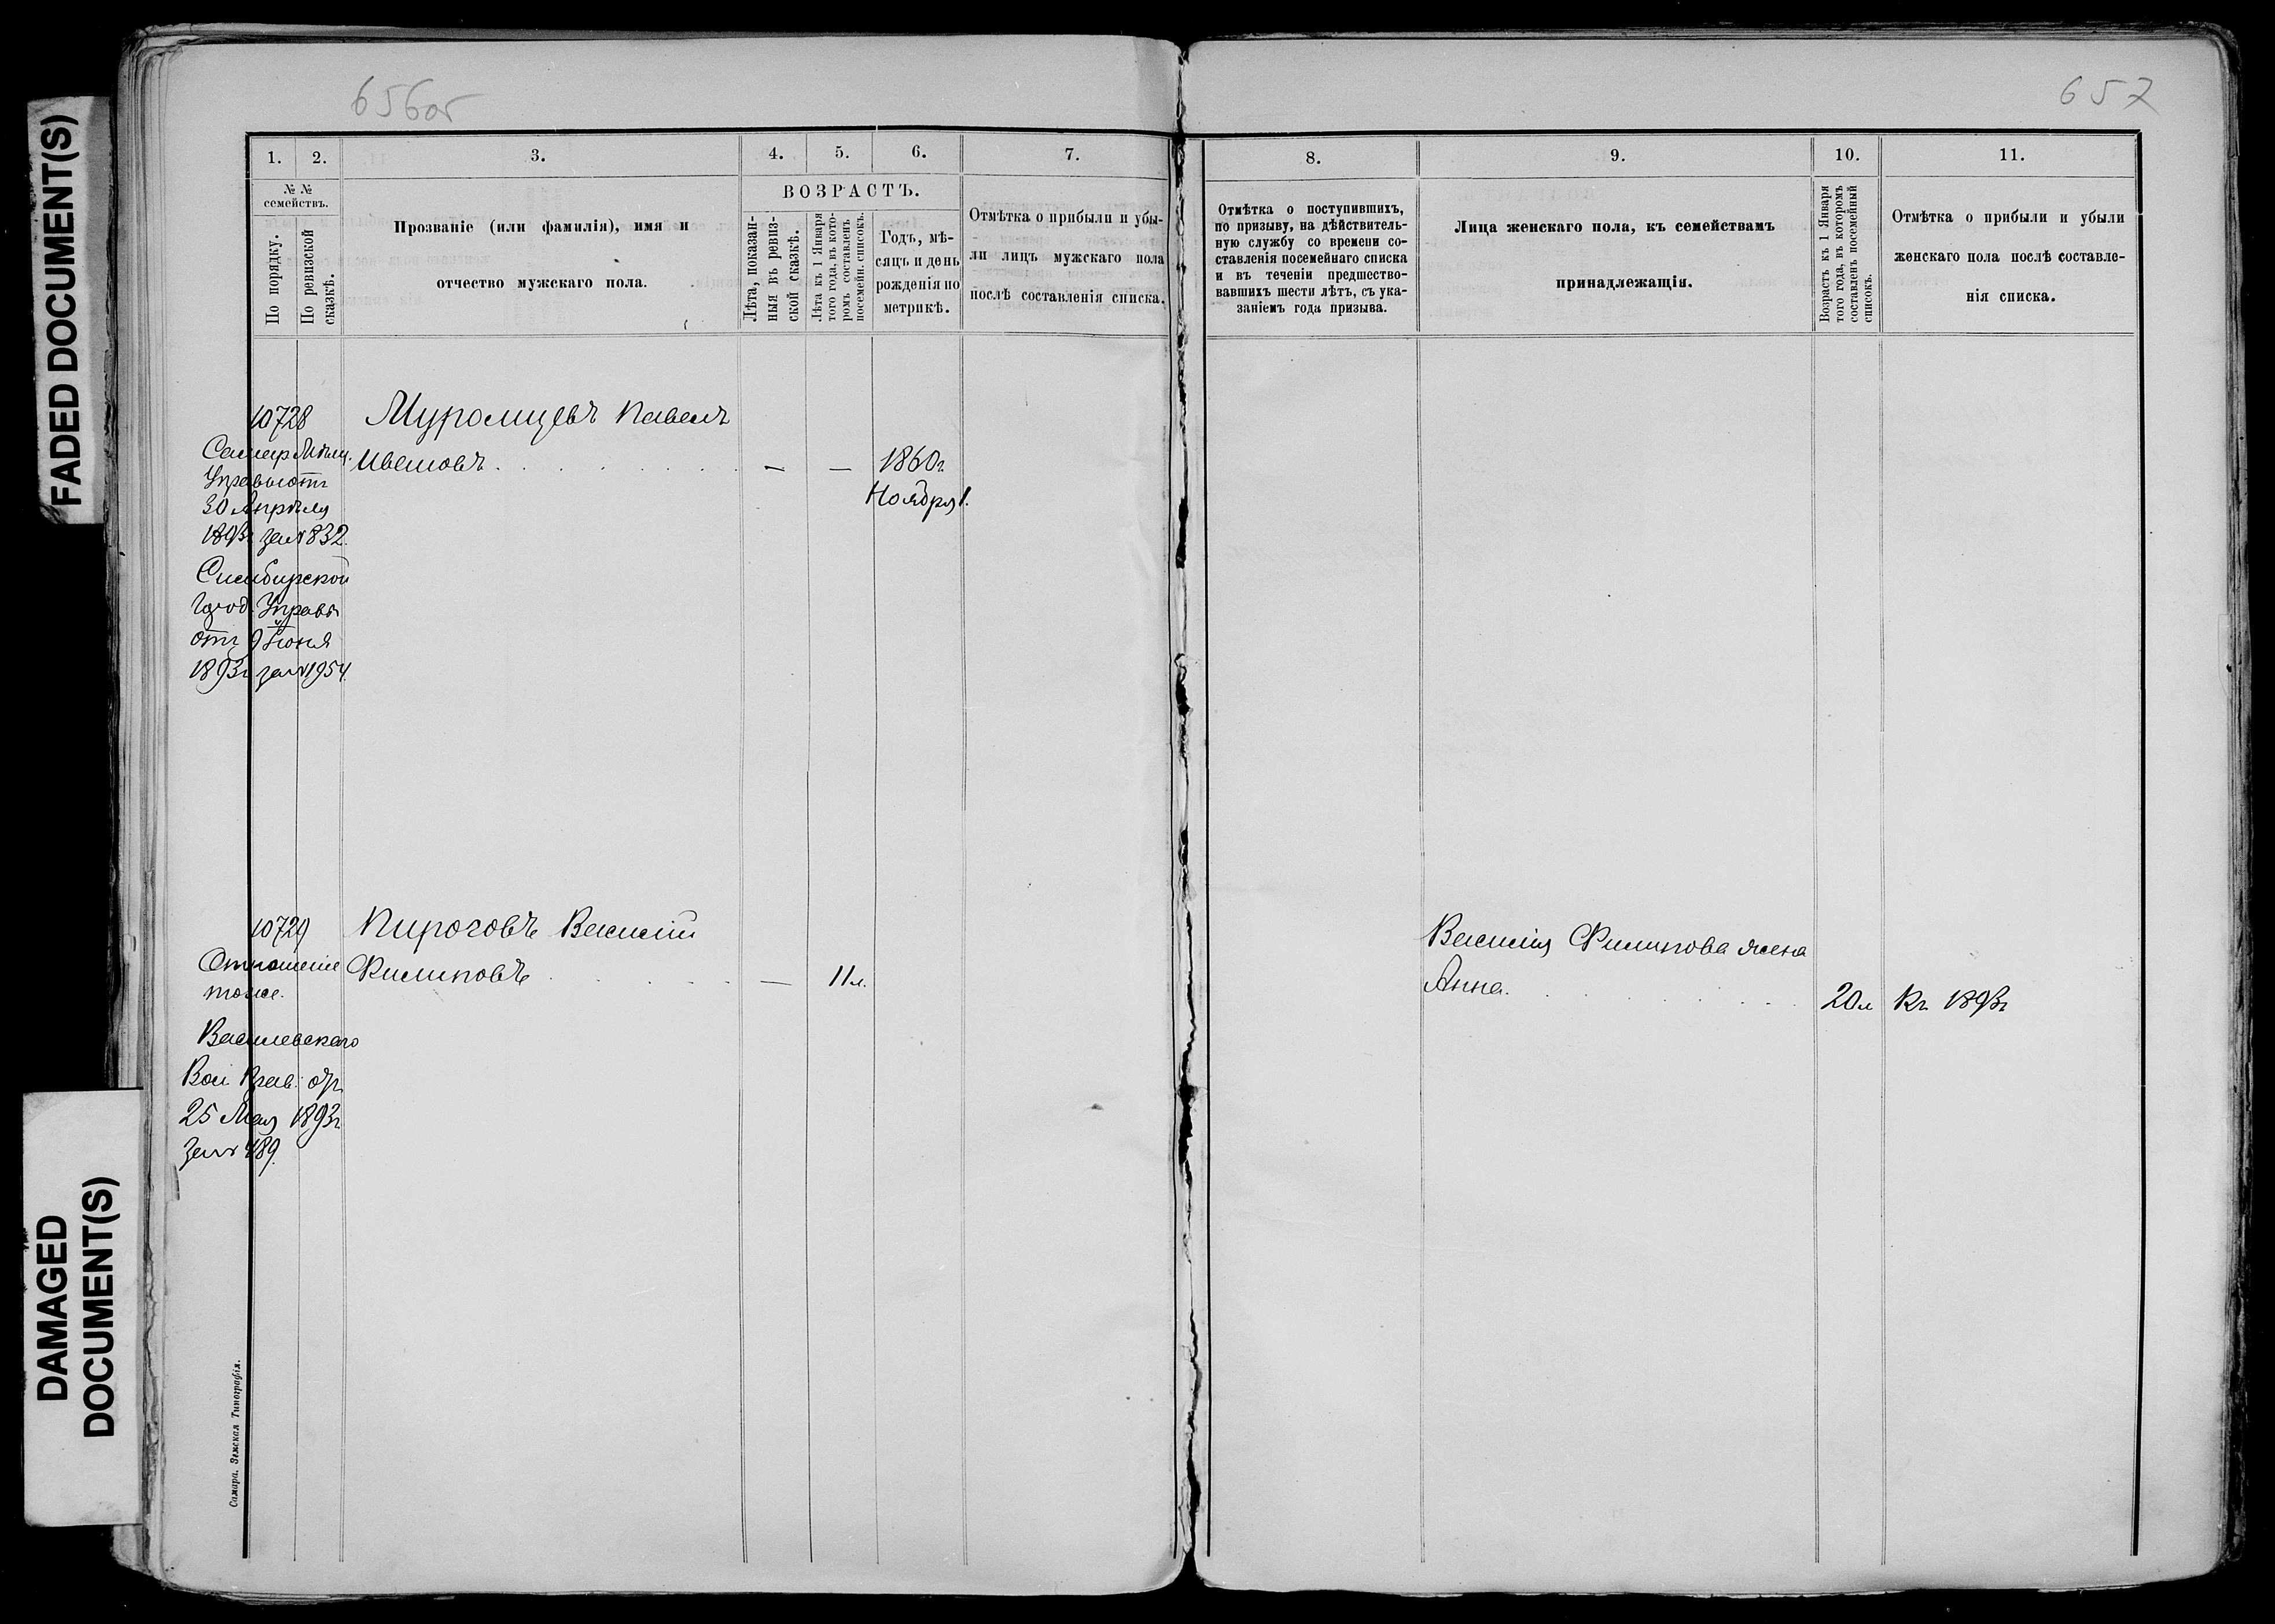 FADED DOCUMENT(S)
DAMAGED
DOCUMENT(S)
656об
1. 2. 3. 4. 5. 6. 7.
№ №
семействъ.
По порядку.
По ревизской
сказкѣ.
Прозваніе (или фамилія), имя и
отчество мужскаго пола.
ВОЗРАСТЪ.
Лѣта, показан-
ныя въ ревиз-
ской сказкѣ.
Лѣта къ 1 Января
того года, въ кото-
ромъ составленъ
посемейн. списокъ.
Годъ, мѣ-
сяцъ и день
рожденія по
метрикѣ.
Отмѣтка о прибыли и убы-
ли лицъ мужскаго пола
послѣ составленія списка.
10728
Самар. Мѣщ.
Управы отъ
30 Апрѣля
1893г за № 832.
Симбирской
Город. Управы
отъ 9 Іюня
1893г за № 1954.
Муромцевъ Павелъ
Ивановъ . . . . . . . — — 1860г
Ноября 1.
10729
Отношеніе
тоже.
Василевскаго
Вол. Прав. отъ
25 Мая 1893г
за № 489.
Пироговъ Василій
Филиповъ . . . . . — 11л.
Самара. Земская Типографія.
657
8. 9. 10. 11.
Отмѣтка о поступившихъ,
по призыву, на дѣйствитель-
ную службу со времени со-
ставленія посемейнаго списка
и въ теченіи предшество-
вавшихъ шести лѣтъ, съ ука-
заніемъ года призыва.
Лица женскаго пола, къ семействамъ
принадлежащія.
Возрастъ къ 1 Января
того года, въ которомъ
составленъ посемейный
списокъ.
Отмѣтка о прибыли и убыли
женскаго пола послѣ составле-
нія списка.
Василія Филипова жена
Анна. . . . . . . . 20л Къ 1893г